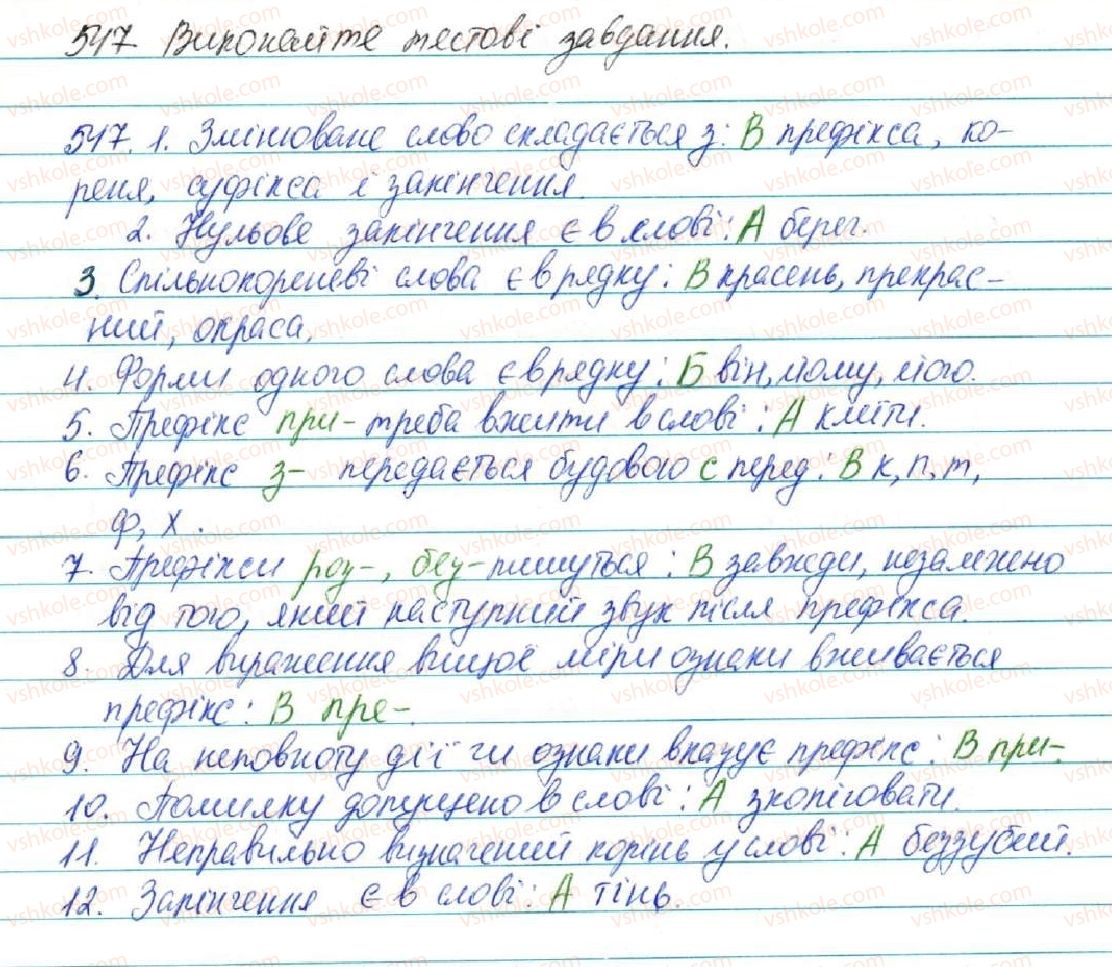 547 Виконайте тестові завдання.
547. 1. Змінюване слово складається з: В префікса, ко-
реня, суфікса і закінчення.
2. Нульове закінчення є в слові: А берег.
3. Спільнокореневі слова є в рядку: В красень, прекрас-
ний, окраса.
4. Форми одного слова є в рядку: Б він, йому, його.
5. Префікс при- треба вжити в слові: А клеїти.
6. Префікс з- передається буквою с перед: В к, п, т,
ф, х.
7. Префікси роз-, без- пишуться: В завжди, незалежно
від того, який наступний звук після префікса.
8. Для вираження вищої міри ознаки вживається
префікс: В пре-.
9. На неповноту дії чи ознаки вказує префікс: В при-.
10. Помилку допущено в слові: А зкопіювати.
11. Неправильно визначений корінь у слові: А беззубий.
12. Закінчення є в слові: А тінь.